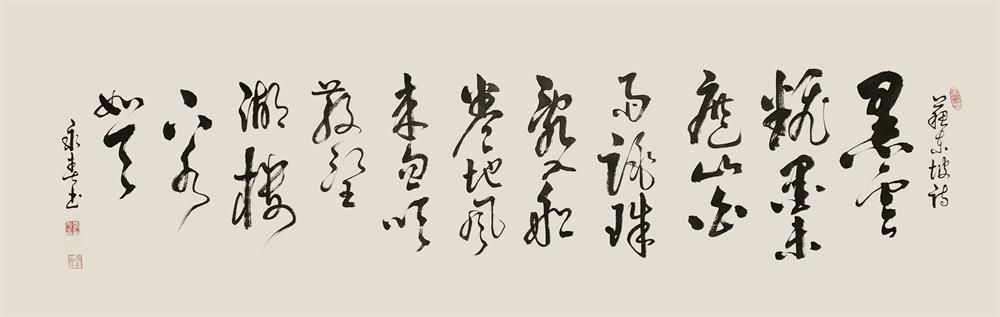 蘇東坡詩
黑雲
飜墨未
遮山白
雨跳珠
亂入船
卷地風
來忽吹
散望
湖樓
下水
如天
永春書